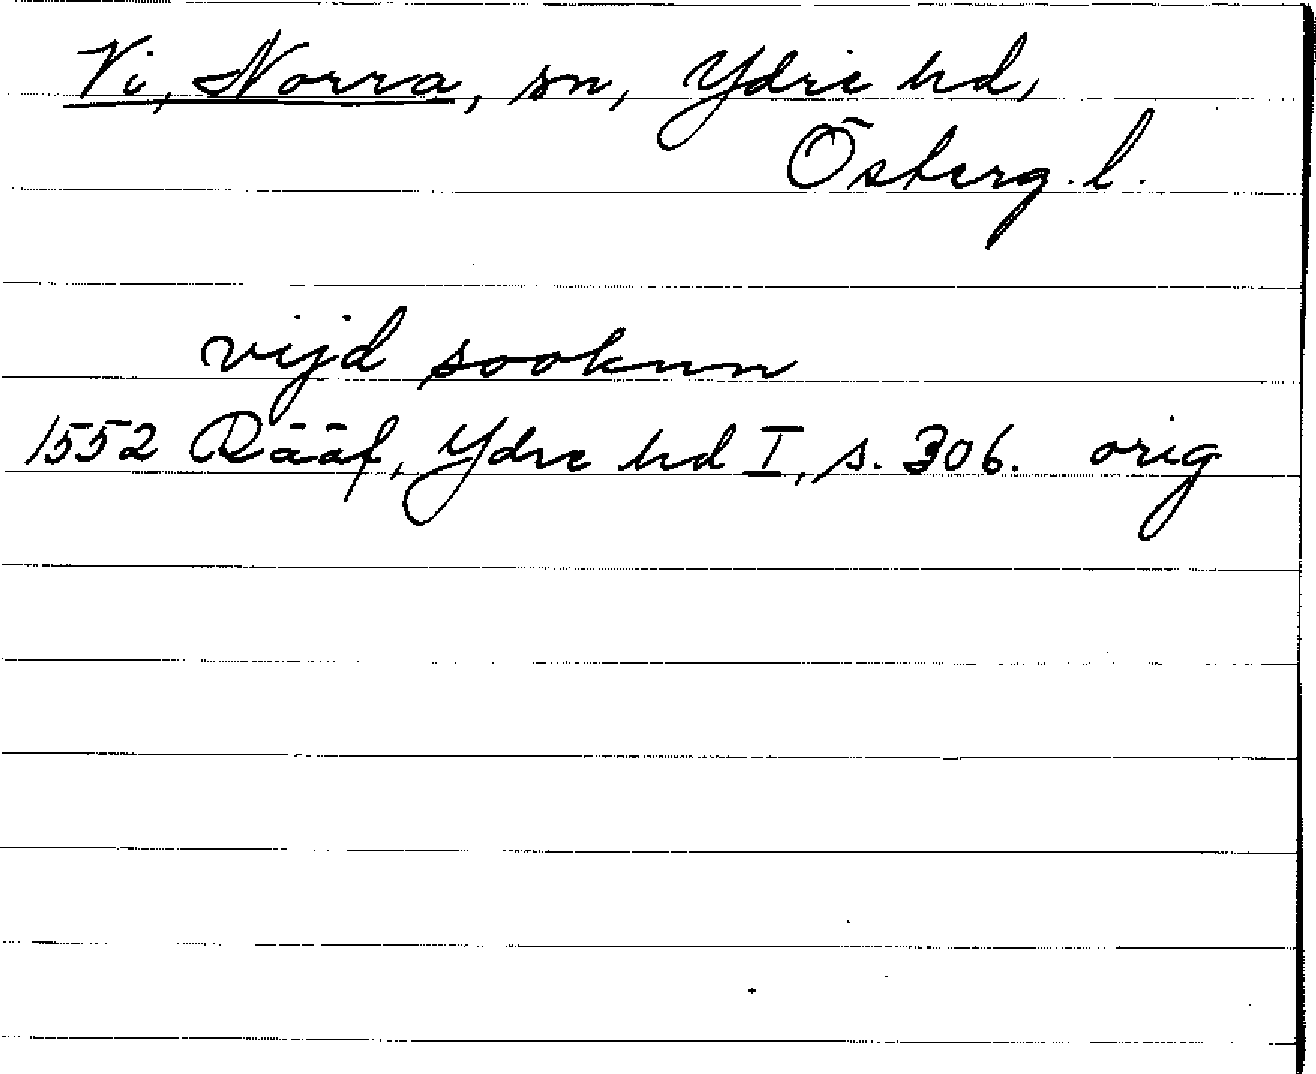 Vi, Norra, sn, Ydre hd,
Österg. l.
vijd sooknn
1552 Rääf, Ydre hd I, s. 306. orig